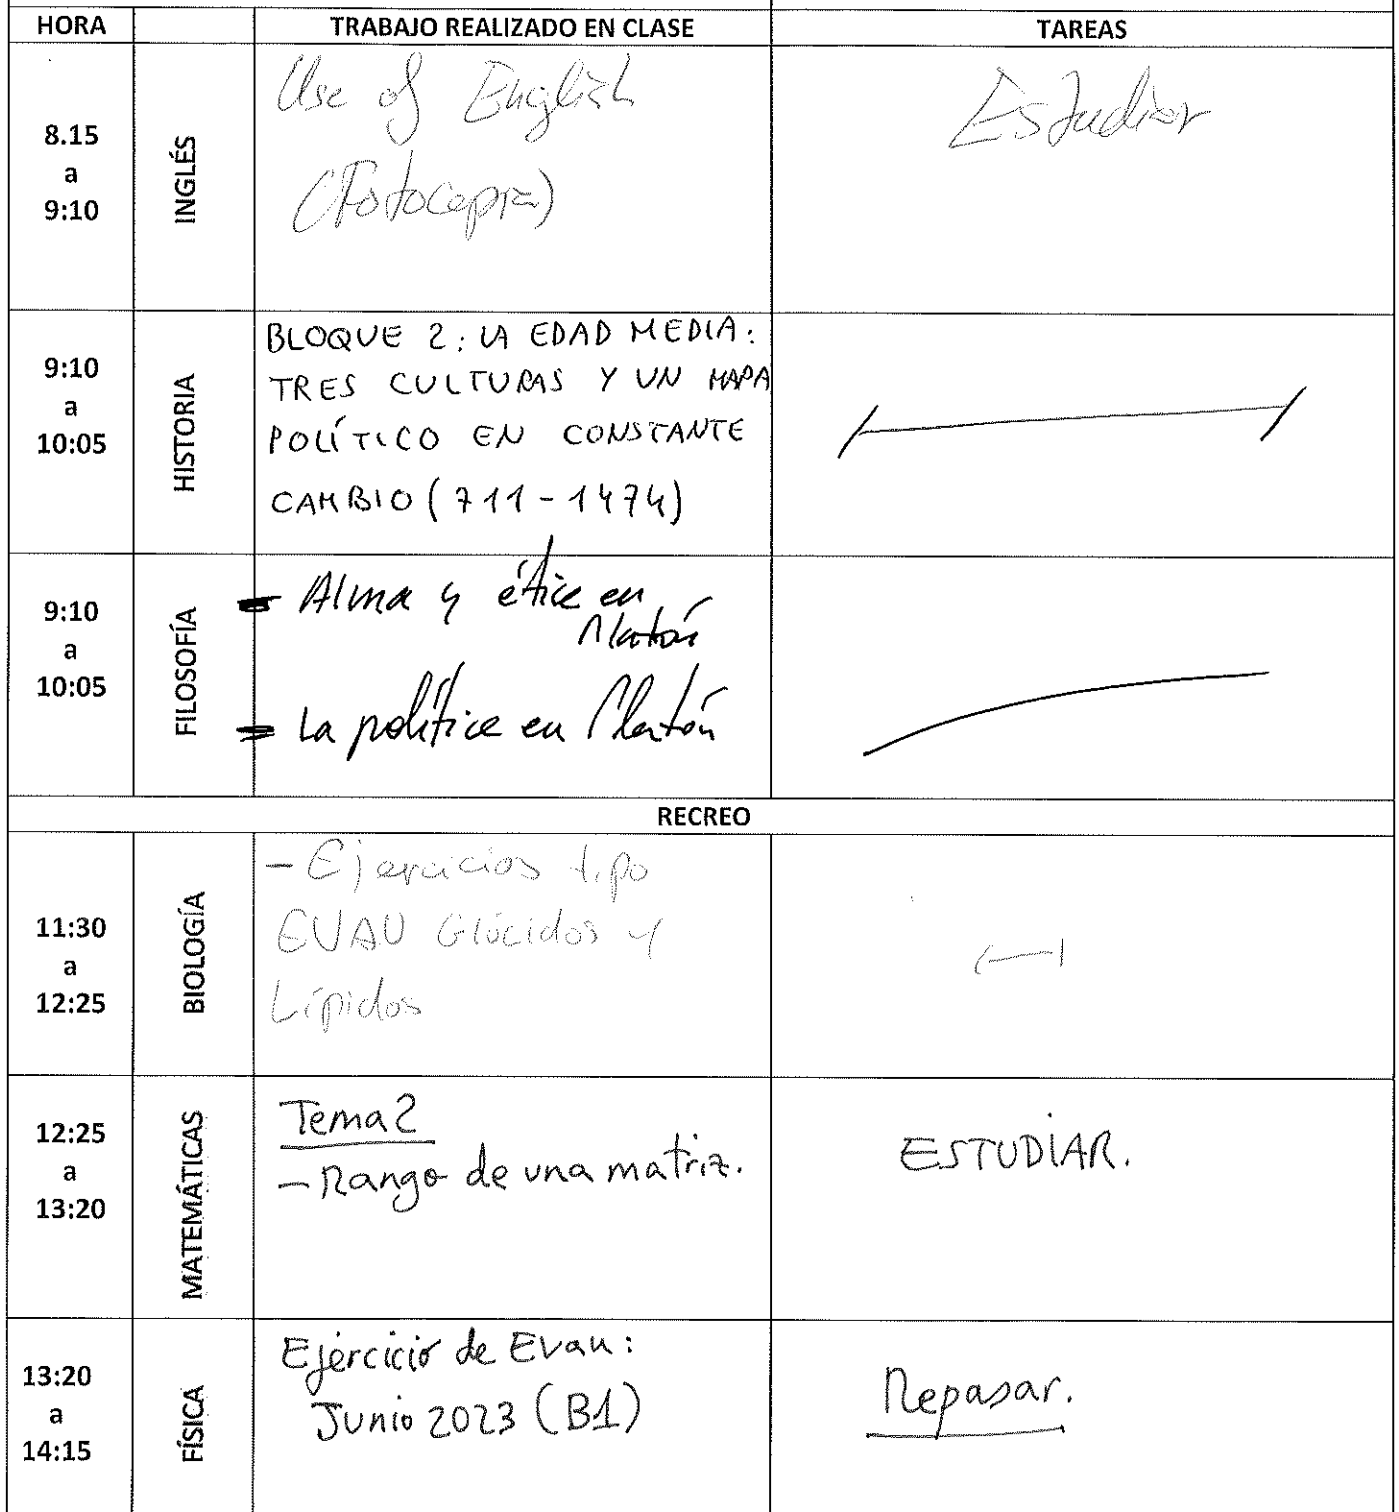 HORA TRABAJO REALIZADO EN CLASE TAREAS
8.15
a
9:10
INGLÉS
Use of English
(Fotocopia)
Estudiar
9:10
a
10:05
HISTORIA
BLOQUE 2: LA EDAD MEDIA:
TRES CULTURAS Y UN MAPA
POLÍTICO EN CONSTANTE
CAMBIO (711-1474)
9:10
a
10:05
FILOSOFÍA
- Alma y ética en
Platón
- La política en Platón
RECREO
11:30
a
12:25
BIOLOGÍA
- Ejercicios tipo
EVAU Glúcidos y
Lípidos
12:25
a
13:20
MATEMÁTICAS
Tema 2
- Rango de una matriz.
ESTUDIAR.
13:20
a
14:15
FÍSICA
Ejercicio de Evau:
Junio 2023 (B1)
Repasar.